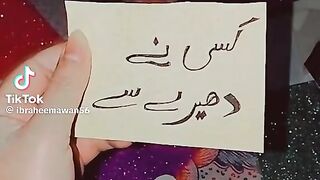 کسی نے
دھیرے سے
TikTok
@ibraheemawan56